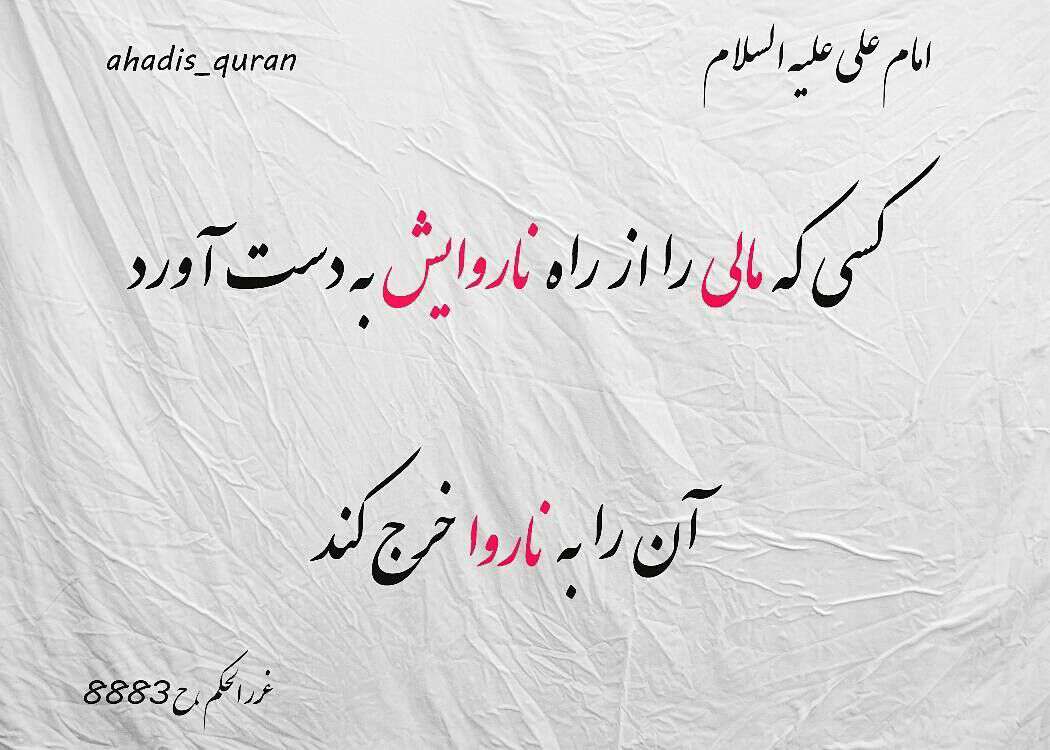 امام علی علیه السلام
ahadis_quran
کسی که مالی را از راه ناروایش به دست آورد
آن را به ناروا خرج کند
غررالحکم ح 8883